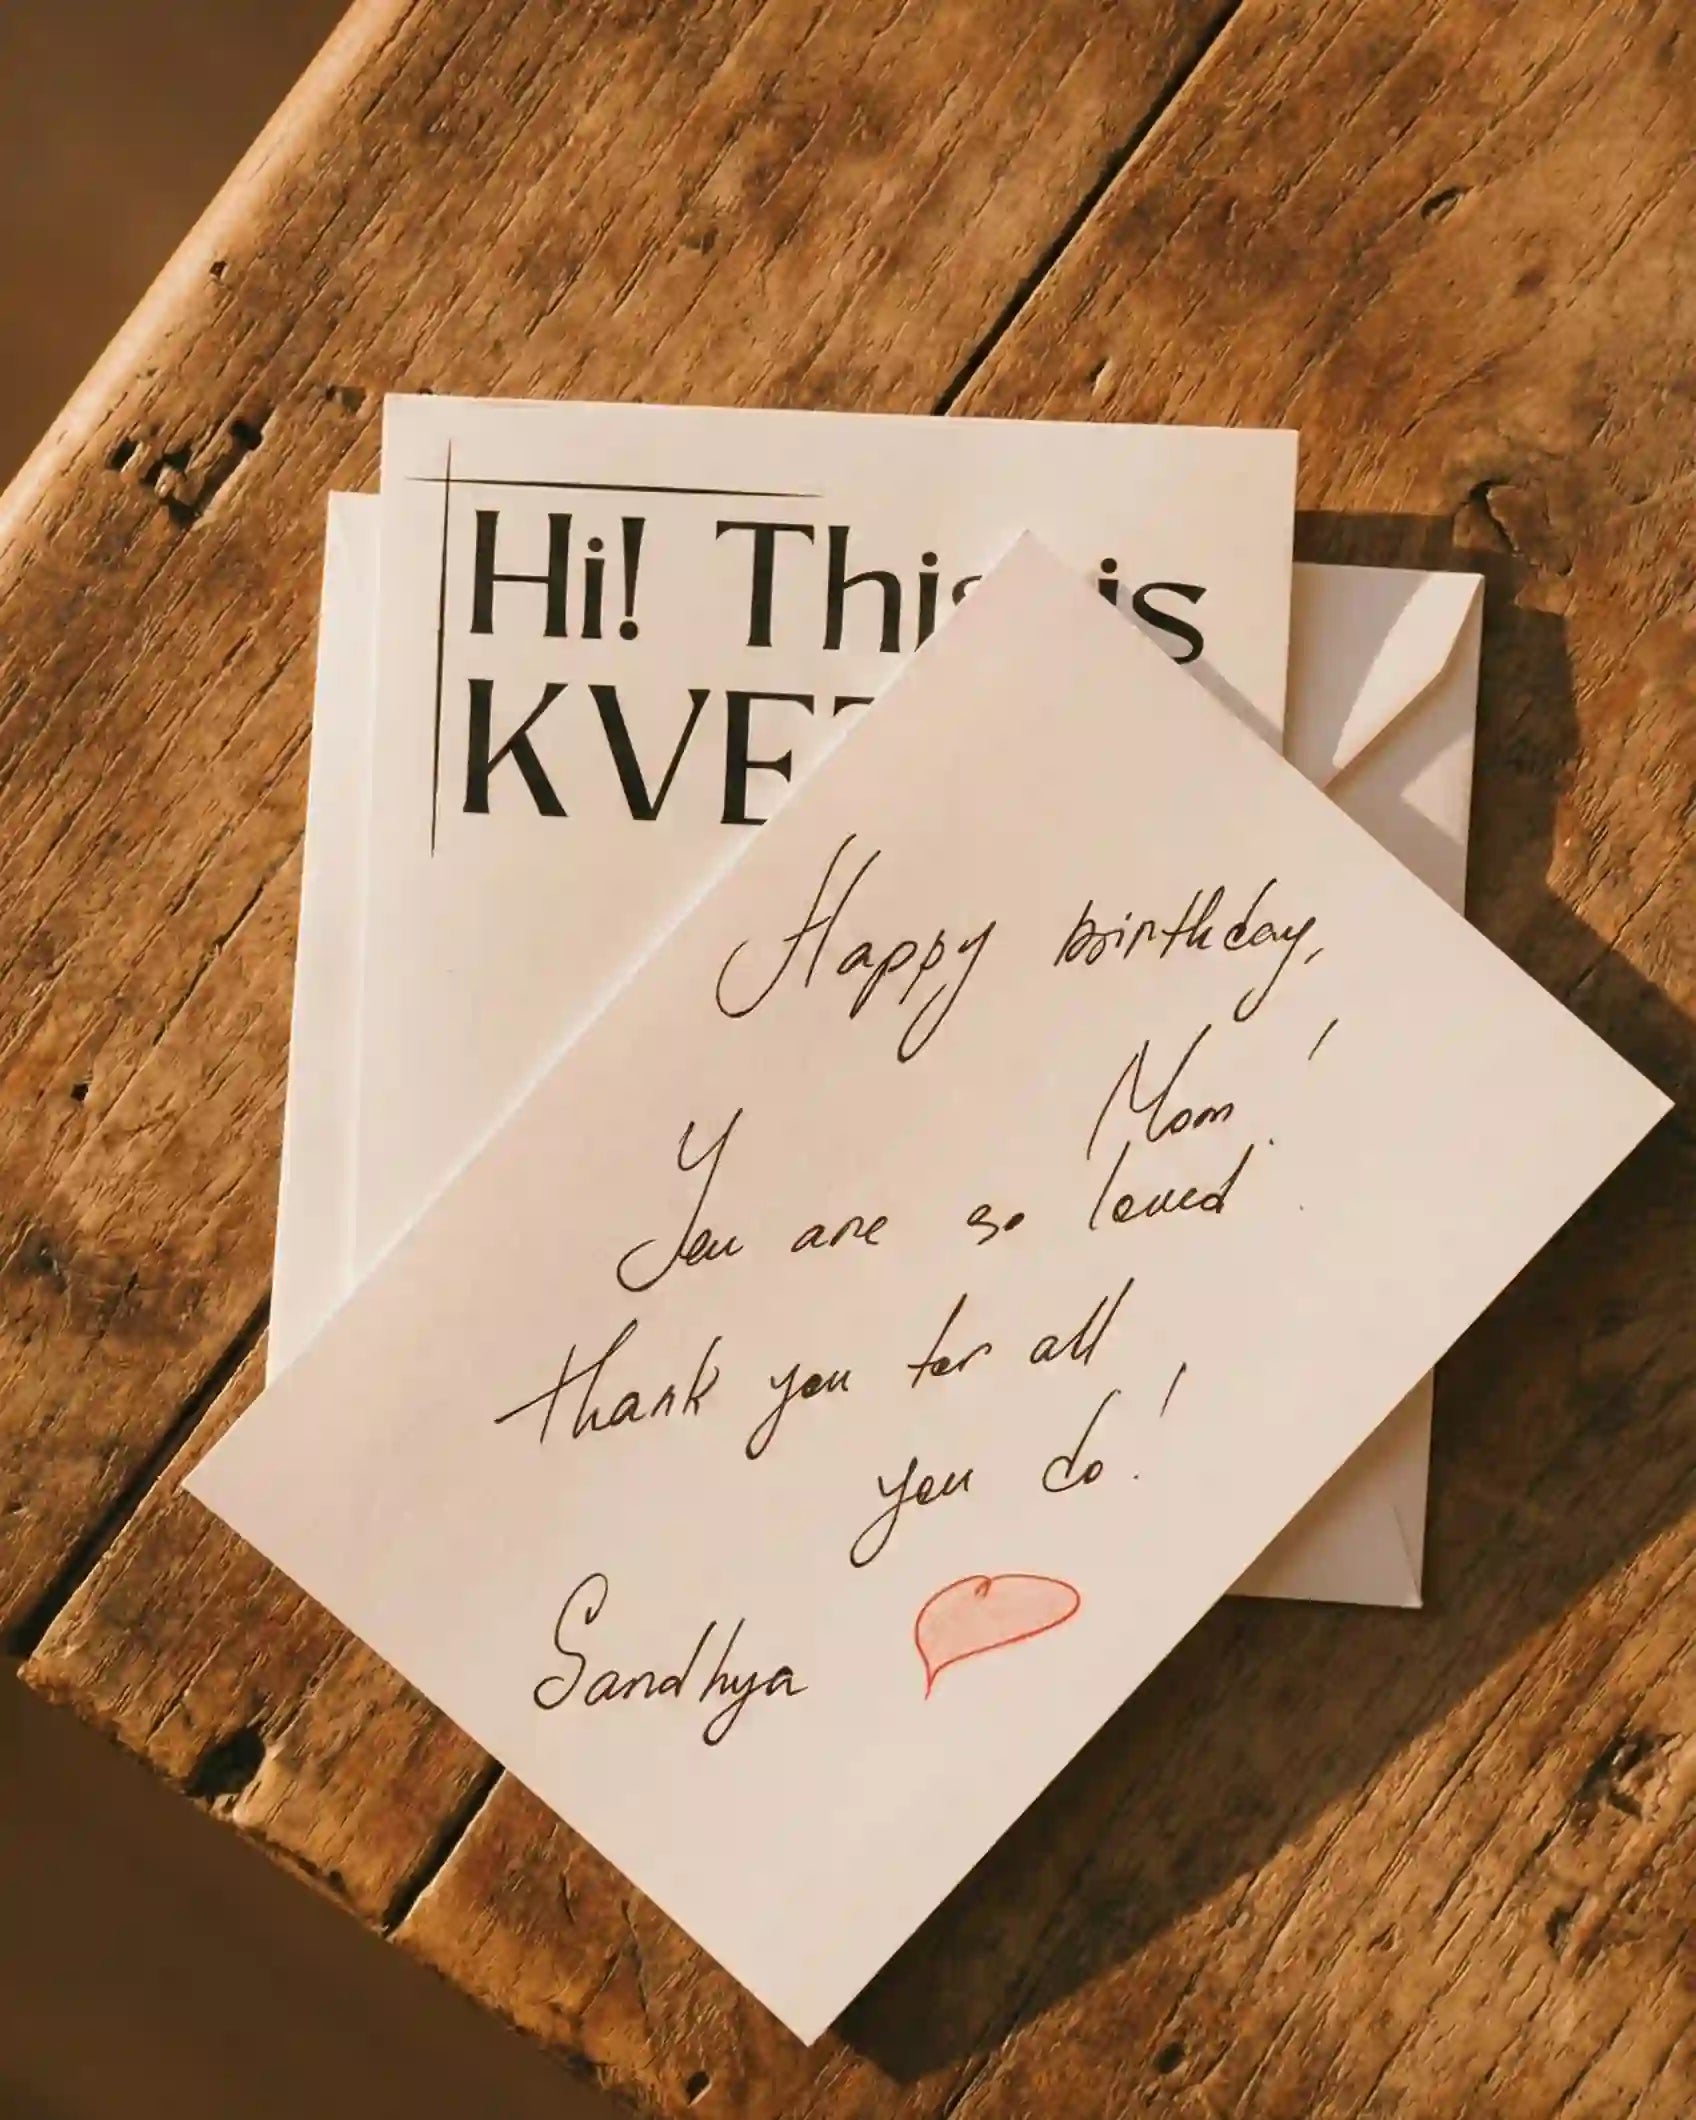 Hi! This is
KVE
Happy birthday,
Mom!
You are so loved.
thank you for all
you do!
Sandhya